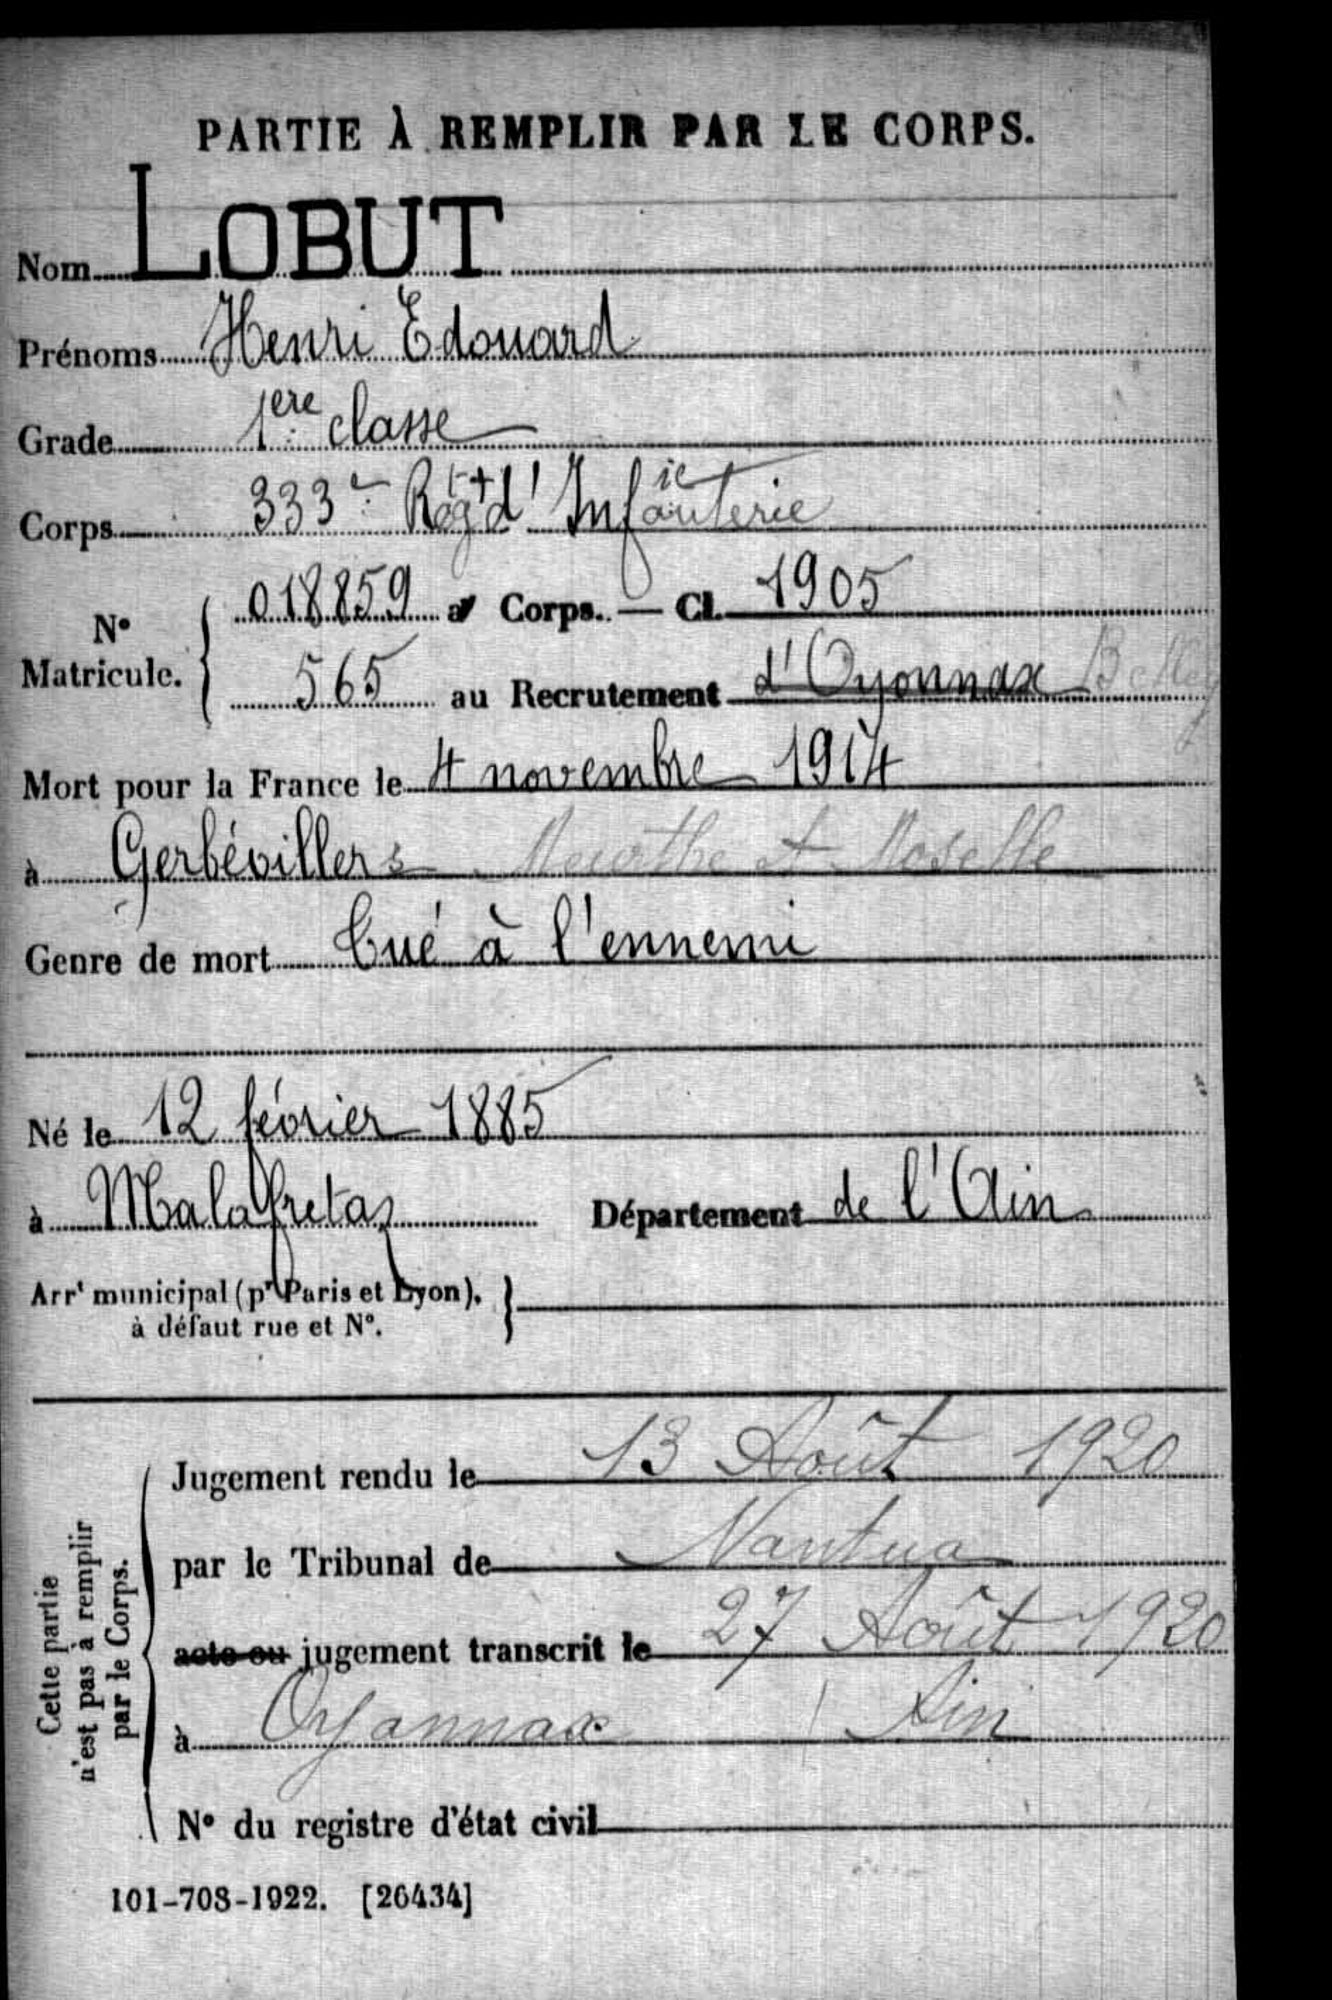 PARTIE À REMPLIR PAR LE CORPS.
Nom LOBUT
Prénoms Henri Edouard
Grade 1ere classe
Corps 333e Régt d'Infanterie
N° Matricule. 018859 au Corps. — Cl. 1905
565 au Recrutement d'Oyonnax Belley
Mort pour la France le 4 novembre 1914
à Gerbévillers Meurthe et Moselle
Genre de mort Tué à l'ennemi
Né le 12 février 1885
à Malafretaz Département de l'Ain
Arrt municipal (pr Paris et Lyon),
à défaut rue et N°.
Cette partie
n'est pas à remplir
par le Corps.
Jugement rendu le 13 Août 1920
par le Tribunal de Nantua
acte ou jugement transcrit le 27 Août 1920
à Oyannax Ain
N° du registre d'état civil
101-708-1922. [26434]